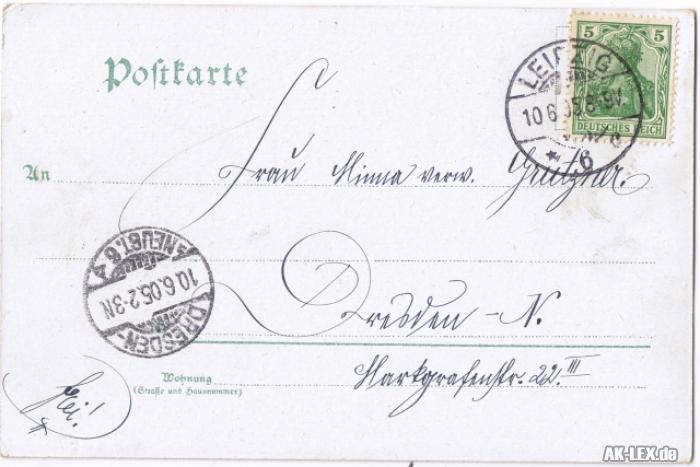 Postkarte
5 5
DEUTSCHES REICH
LEIPZIG
10 6 05 6-9V
* 6
An
Frau Minna verw. Grützner.
NEUST. 6
10.6.05.2-3N
DRESDEN-
Dresden-N.
Markgrafenstr. 22.III
Wohnung
(Straße und Hausnummer)
frei!
AK-LEX.de